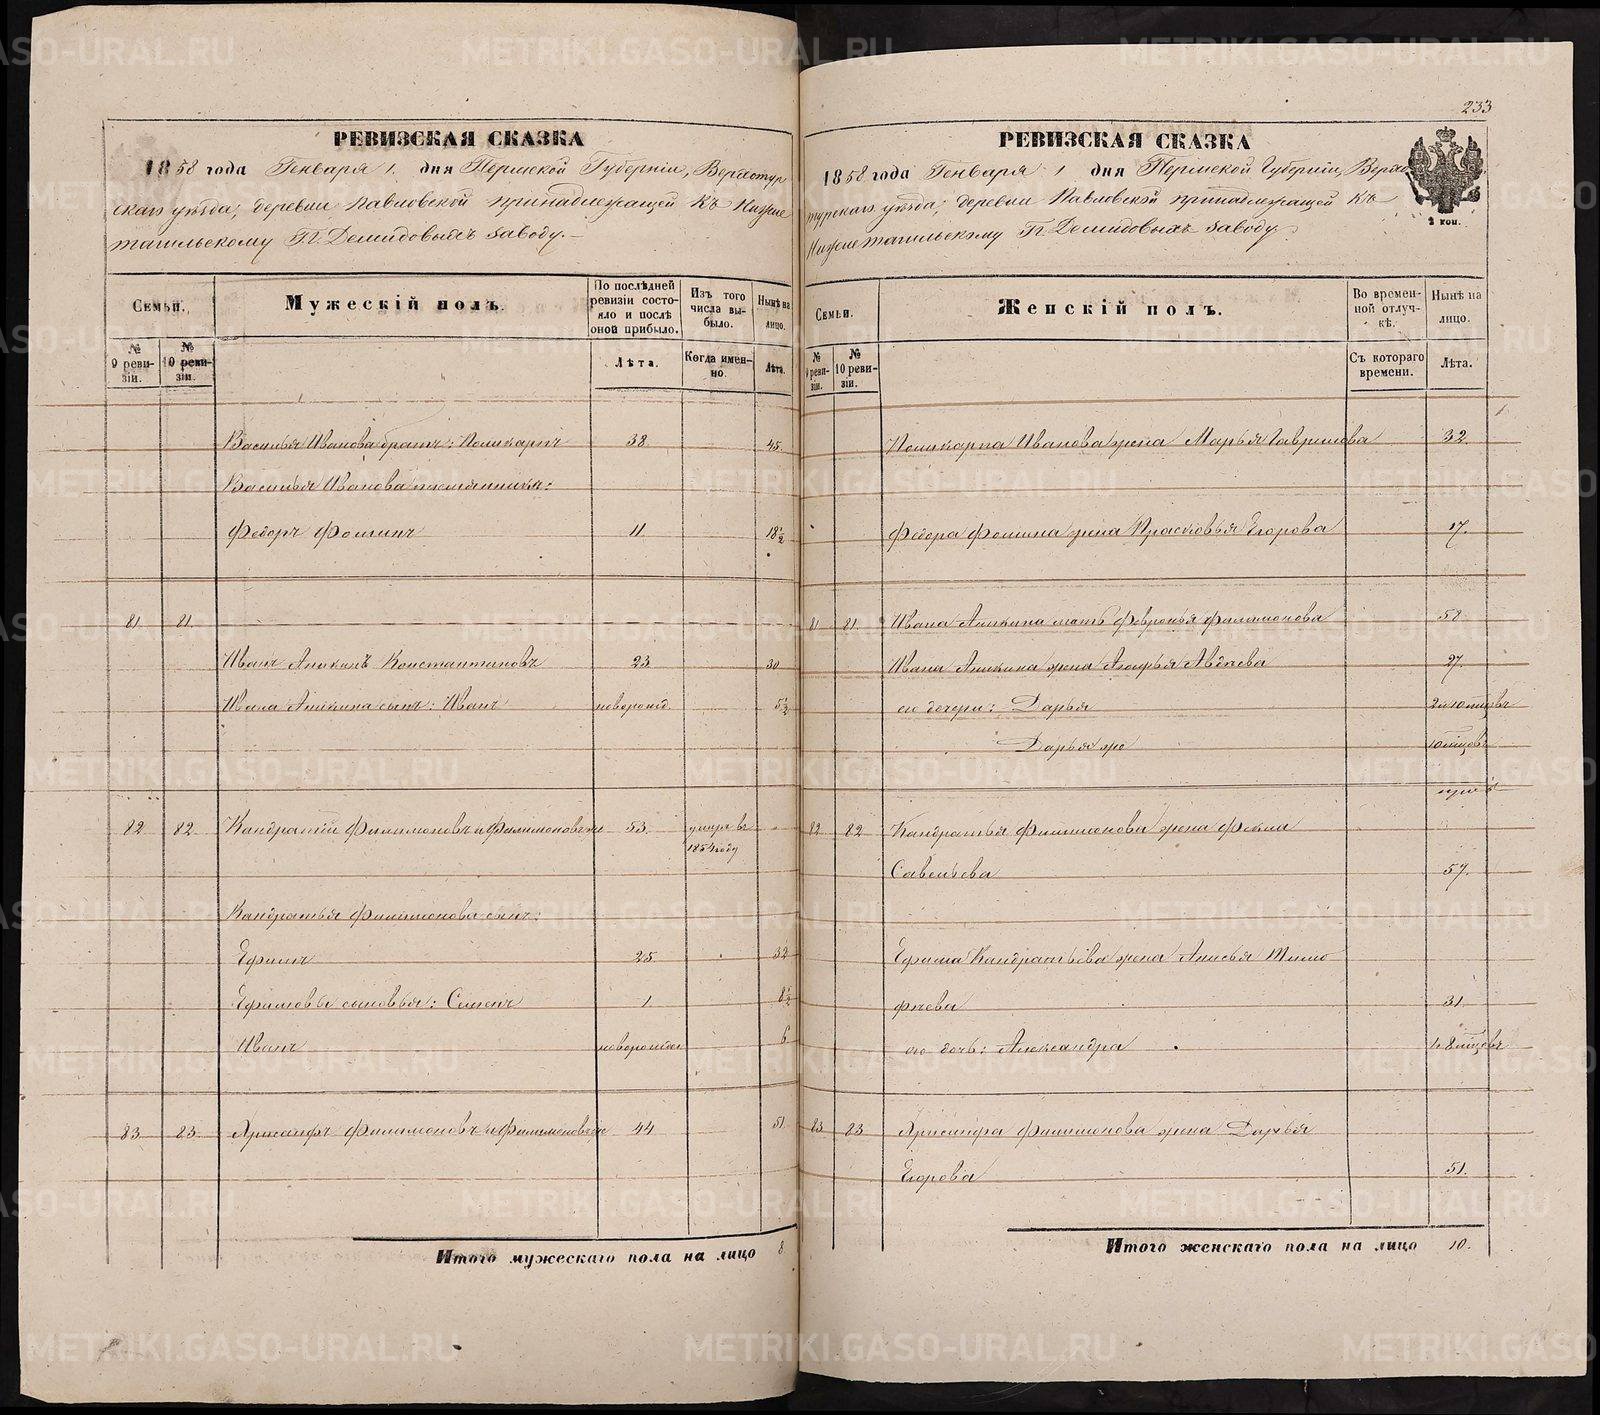 РЕВИЗСКАЯ СКАЗКА
1858 года Генваря 1. дня Пермской Губерніи, Верхотур
скаго уѣзда, деревни Павловской принадлежащей къ Нижне
тагильскому Гг. Демидовыхъ заводу.
Семьи.
Мужескій полъ.
По послѣдней ревизіи состояло и послѣ оной прибыло.
Изъ того числа выбыло.
Нынѣ на лицо.
№ 9 ревизіи.
№ 10 ревизіи.
Лѣта.
Когда именно.
Лѣта.
Василья Иванова братъ: Поликарпъ 38 45
Василья Иванова племянникъ:
Федоръ Фоминъ 11 18½
81. 81.
Иванъ Аникинъ Константиновъ 23 30
Ивана Аникина сынъ: Иванъ новорожд 5½
82 82. Кандратій Филимоновъ Филимоновъ же 53. умеръ въ
1854 году
Кандратья Филимонова сынъ:
Ефимъ 25. 32
Ефимовы сыновья: Семенъ 1 8½
Иванъ новорожден 6
83 83. Хрисанфъ Филимоновъ Филимоновъ же 44 51
Итого мужескаго пола на лицо 8
233
РЕВИЗСКАЯ СКАЗКА
1858 года Генваря 1 дня Пермской Губерніи, Верхо
турскаго уѣзда, деревни Павловской принадлежащей къ
Нижнетагильскому Гг. Демидовыхъ заводу
2 коп.
Семьи.
Женскій полъ.
Во временной отлучкѣ.
Нынѣ на лицо.
№ 9 ревизіи.
№ 10 ревизіи.
Съ котораго времени.
Лѣта.
Поликарпа Иванова жена Марья Гаврилова 32
Федора Фомина жена Прасковья Егорова 17.
81 81. Ивана Аникина мать Февронья Филимонова 58
Ивана Аникина жена Агафья Авдѣева 27.
его дочери: Дарья
Дарья же
82 82 Кандратья Филимонова жена
Савельева 57.
Ефима Кандратьева жена Анисья Тимо
фѣева 31
его дочь: Александра
83 83 Хрисанфа Филимонова жена Дарья
Егорова 51.
Итого женскаго пола на лицо 10.
METRIKI.GASO-URAL.RU